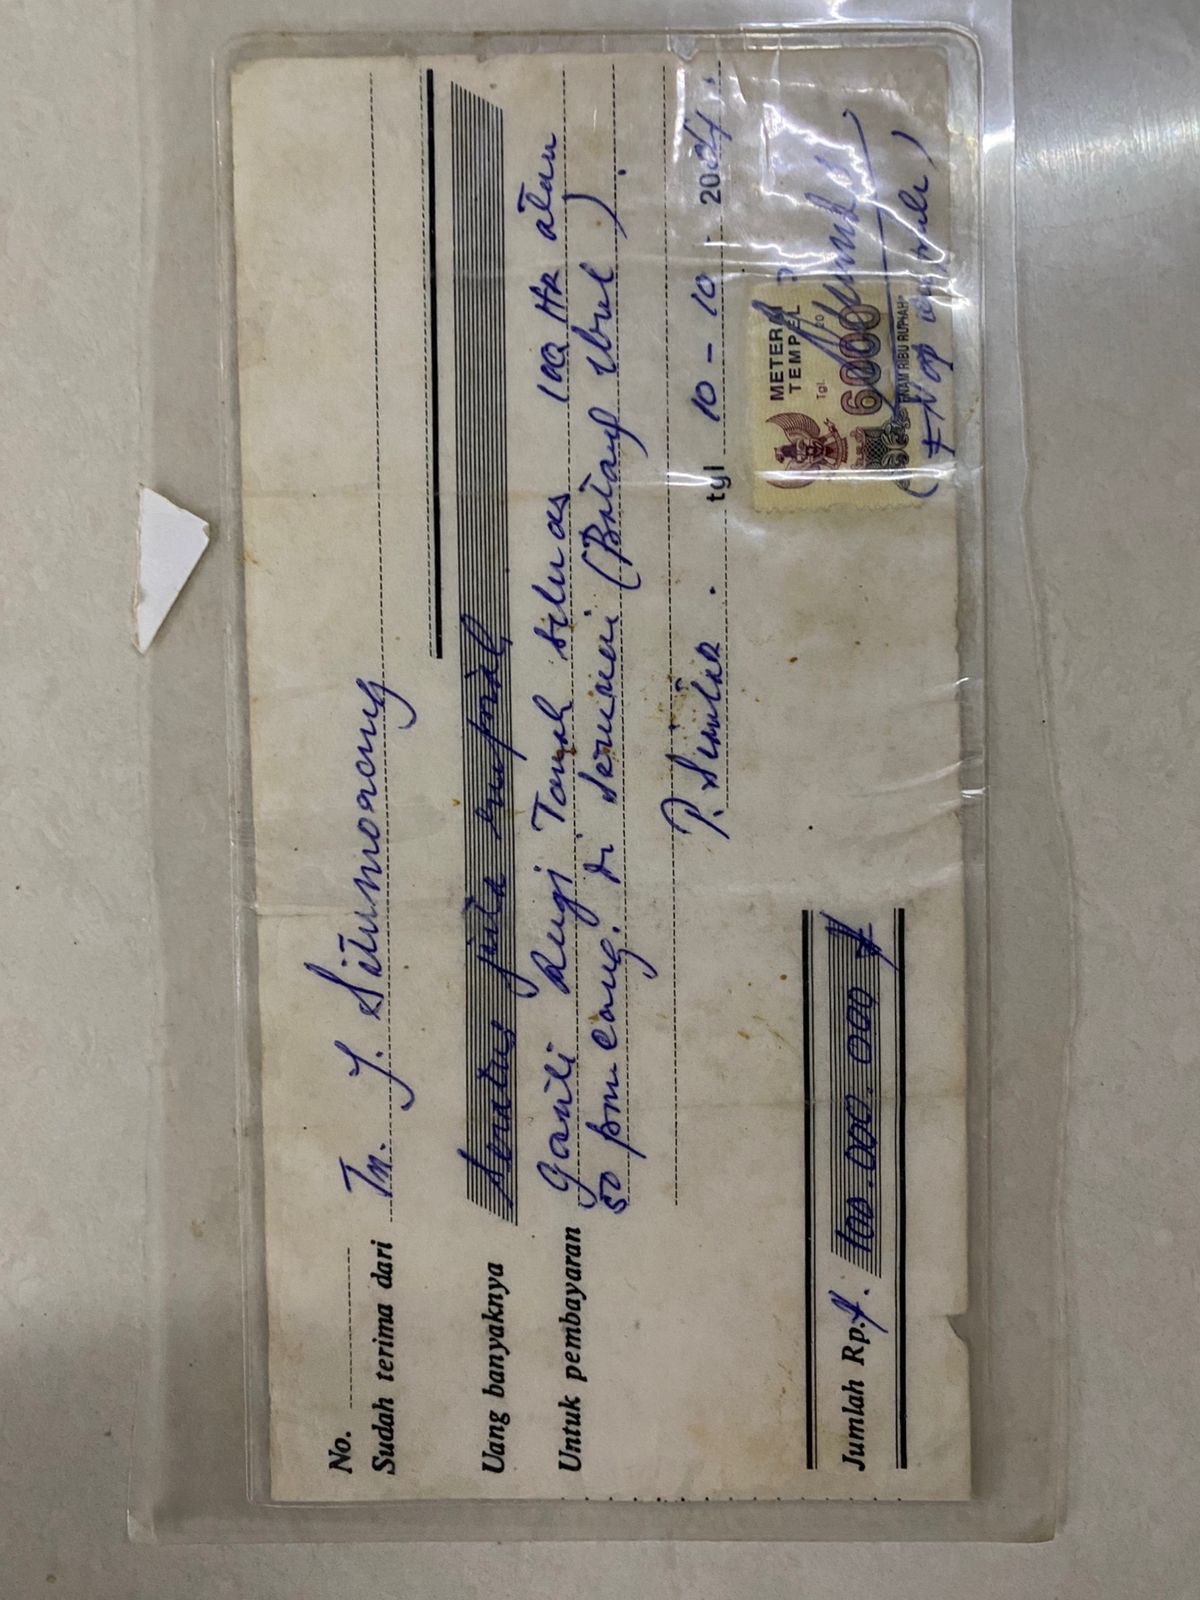 No.
Sudah terima dari Tn. J. Situmorang
Uang banyaknya Seratus juta rupiah
Untuk pembayaran Ganti Rugi Tanah seluas 100 Ha atau
50 pancang. di Seruwei (Batang Ibul).
P. Siantar. tgl 10 - 10 2004.
METERAI
TEMPEL
Tgl. 20
6000
ENAM RIBU RUPIAH
Jumlah Rp. 100.000.000